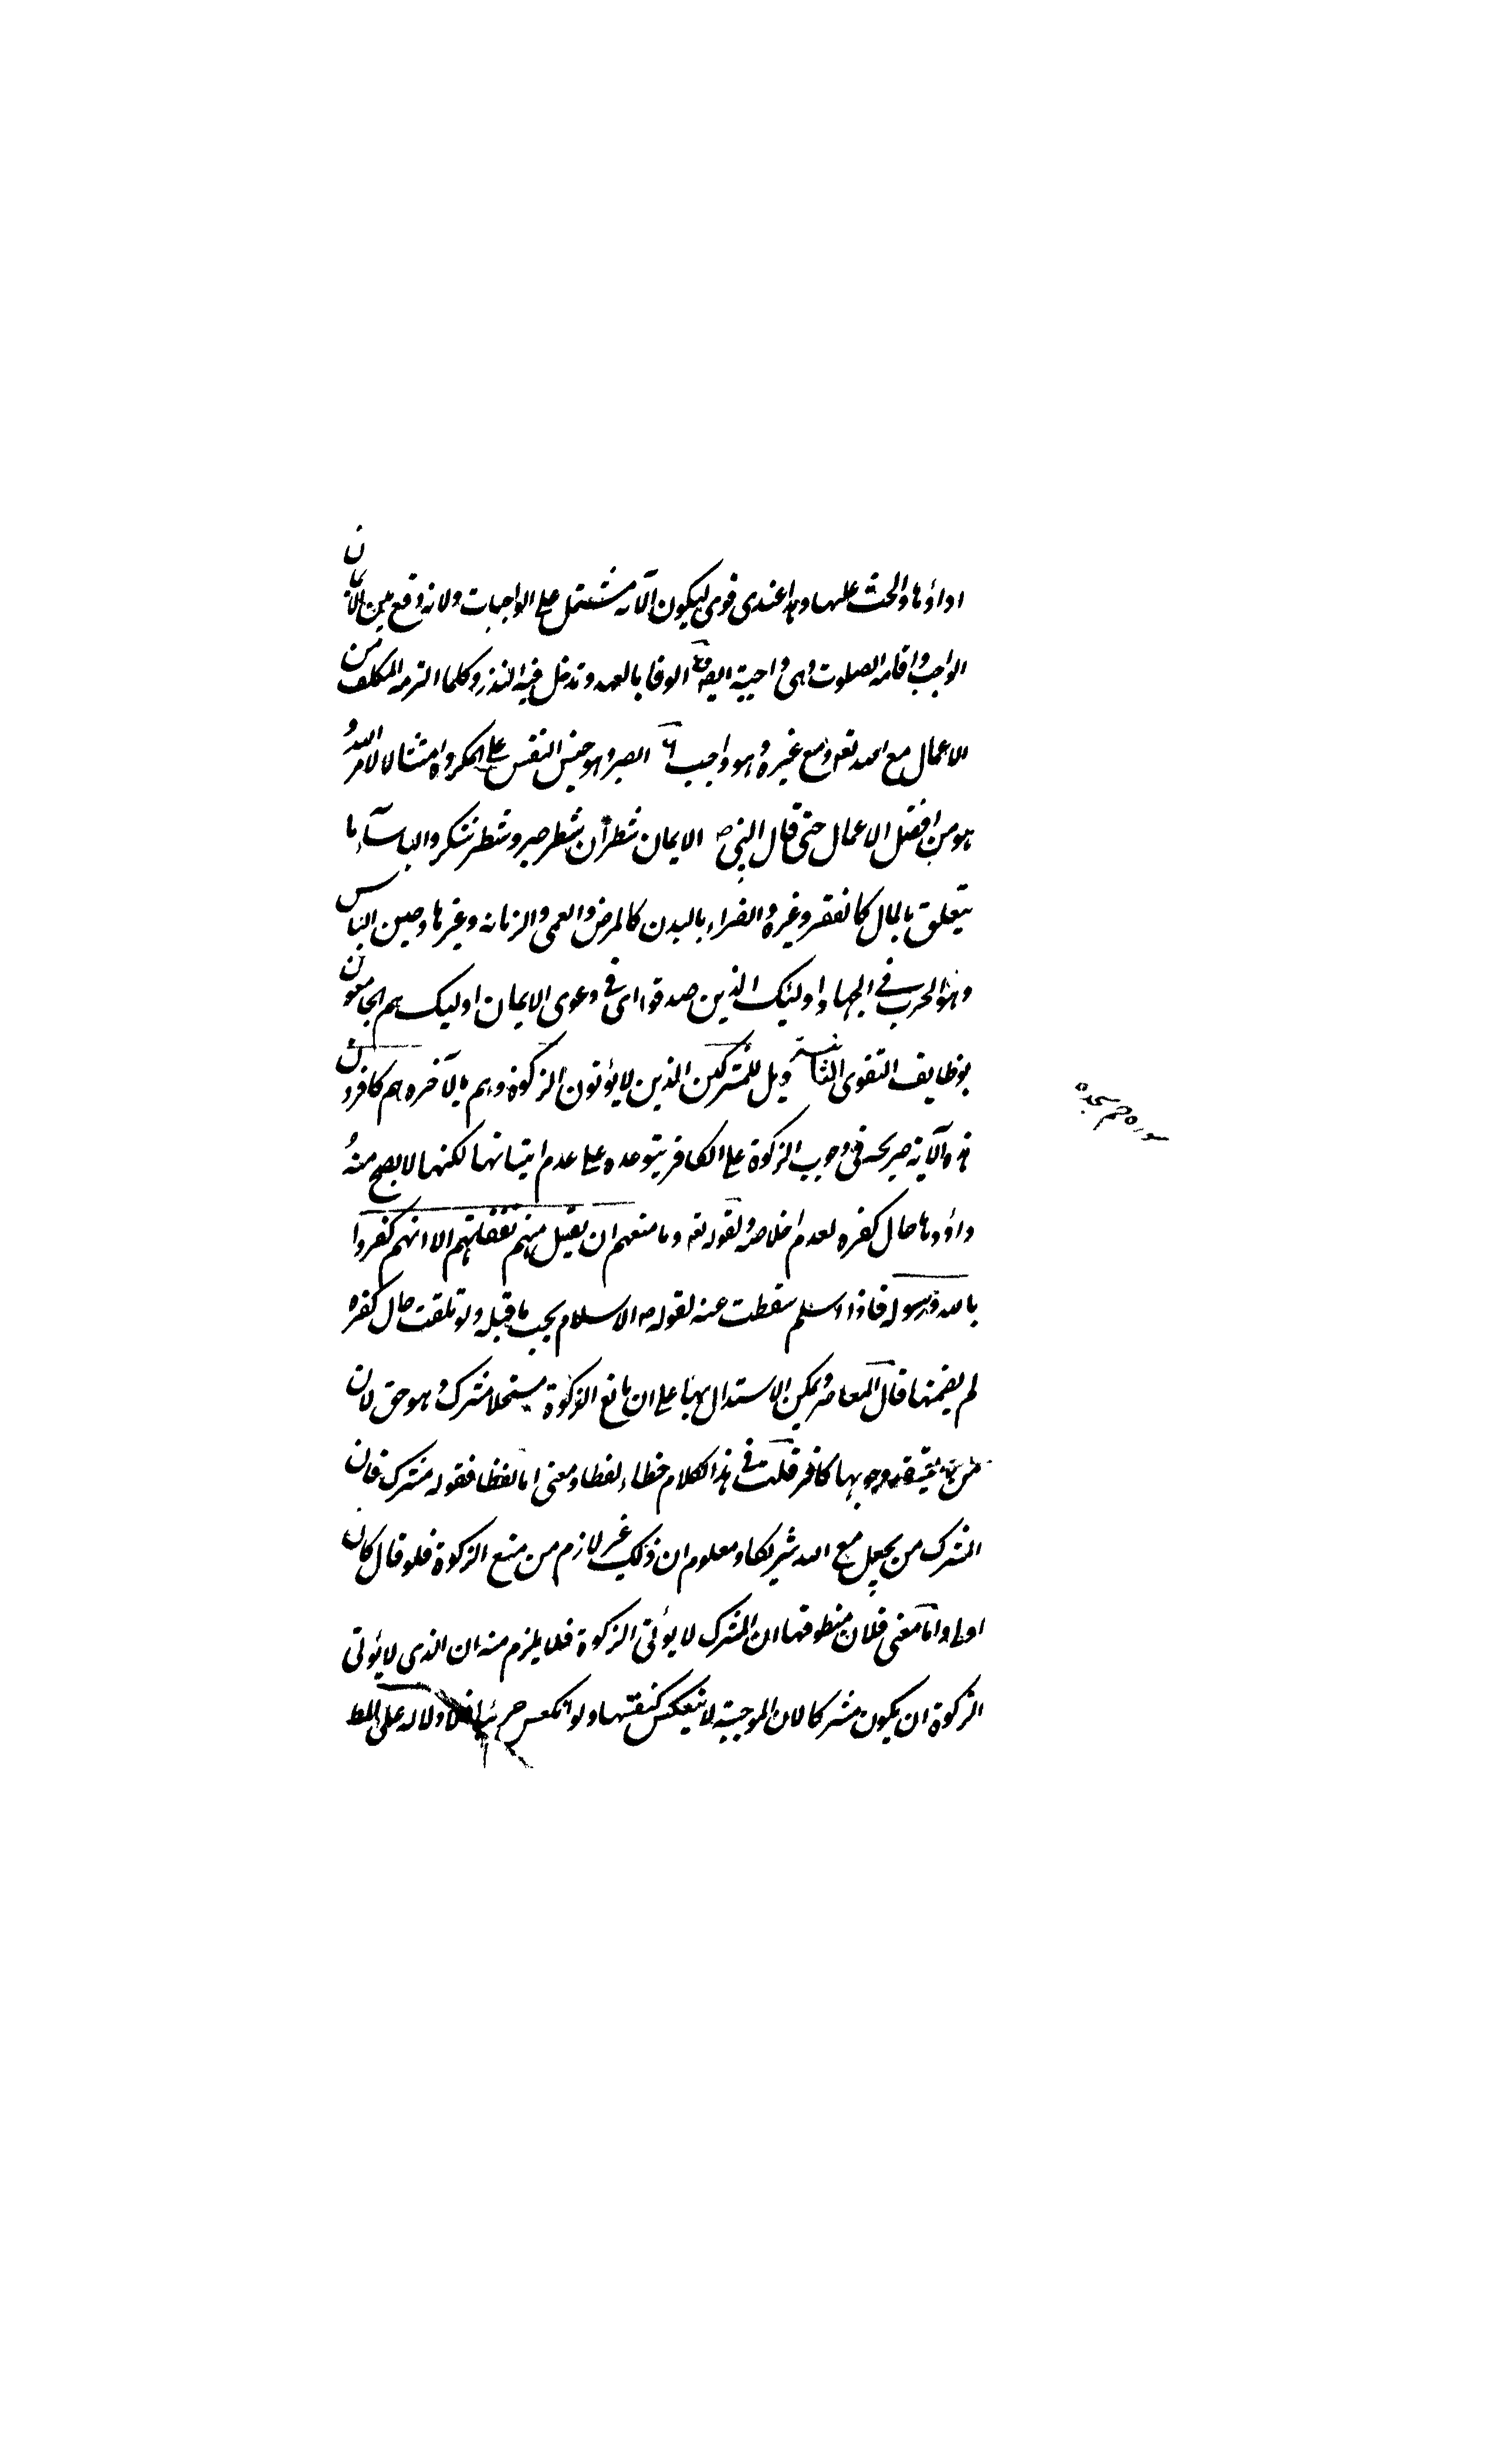 اداؤها والحث عليها وهذا عندى قوى ليكون الآية مشتمل على الواجبات ولانه وقع بين الايمان
الواجب واقامه الصلوت وهى واجبة ايضا الوفا بالعهد وتدخل فيه النذر وكلما التزمه المكلف من
الاعمال مع الله تعه ومع غيره وهو واجب ٦ الصبر وهو حبس النفس على المكروه امتثالا لامر الله و
هو من افضل الاعمال حتى قال النبى ص الايمان شطران شطر صبر وشطر شكر والباسآء ما
يتعلق بالمال كالفقر وغيره والضراء بالبدن كالمرض والعمى والزمانه وغيرها وحين الباس
وهو الحرب فى الجهاد اوليك الذين صدقوا اى فى دعوى الايمان اوليك هم الجامعون
بوظايف التقوى الثانية ويل للمشركين الذين لا يؤتون الزكوة وهم بالآخره هم كافرون
هذه الآية صريحه فى وجوب الزكوة على الكافر يتوعده على عدم ايتانها لكنها لا يصح منه
اداؤها حال كفره لعدم اخلاصه ولقوله تعه وما منعهم ان يقبل منهم نفقاتهم الا انهم كفروا
بالله ورسوله فاذا اسلم سقطت عنه لقوله ص الاسلام يجب ما قبله ولو تلفت حال كفره
لم يضمنها قال المعاصر ويمكن الاستدلال بها على ان مانع الزكوة مستحلا مشرك وهو حق لان
من لم يعتقد وجوبها كافر قلت فى هذا الكلام خطاء لفظا ومعنى اما لفظا فقوله مشرك فان
المشرك من يجعل مع الله شريكا ومعلوم ان ذلك غير لازم من منع الزكوة فلو قال كان
اولى واما معنى فلان منطوقها ان المشرك لا يؤتى الزكوة فلا يلزم منه ان الذى لا يؤتى
الزكوة ان يكون مشركا لان الموجبة لا ينعكس كنفسها ولو انعكس جزئيا فلا دلاله على المط
سوره حم سجده